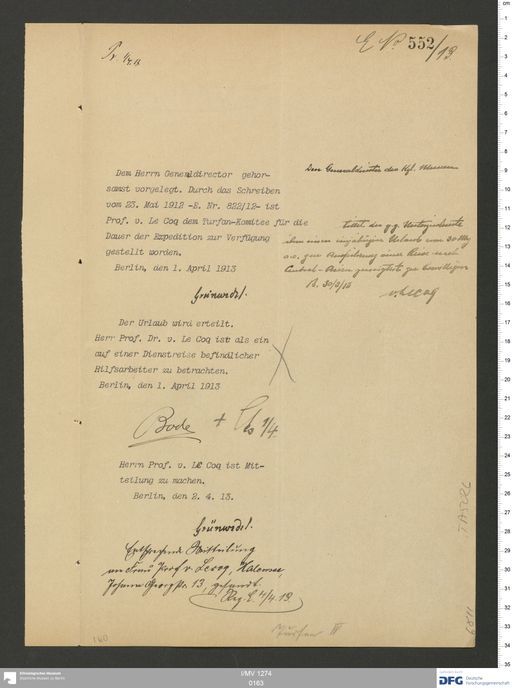 E No 552/13
Pr. 1/4.13
Dem Herrn Generaldirector gehor-
samst vorgelegt. Durch das Schreiben
vom 23. Mai 1912 -E. Nr. 822/12- ist
Prof. v. Le Coq dem Turfan-Komitee für die
Dauer der Expedition zur Verfügung
gestellt worden.
Berlin, den 1. April 1913
Grünwedel.
Der Urlaub wird erteilt.
Herr Prof. Dr. v. Le Coq ist als ein
auf einer Dienstreise befindlicher
Hilfsarbeiter zu betrachten.
Berlin, den 1. April 1913
Bode + 1/4
Herrn Prof. v. Le Coq ist Mit-
teilung zu machen.
Berlin, den 2. 4. 13.
Grünwedel.
Entsprechende Mitteilung
an Frau Prof v. Lecoq, Halensee,
Johann Georgstr. 13, gesandt.
4/4.13
Dem Generaldirektor der Kgl. Museen
bittet der g. g. Unterzeichnete
ihm einen einjährigen Urlaub vom 30 Mrz
a.c. zur Ausführung einer Reise nach
Central-Asien geneigtest zu bewilligen
B. 30/3/13
v. Lecoq
Turfan IV
160
I/MV 1274
0163
Ethnologisches Museum
Staatliche Museen zu Berlin
DFG Deutsche
Forschungsgemeinschaft